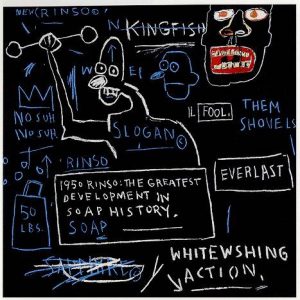 NEW(RINSO©)
N
KINGFISH
W E I
IL FOOL.
THEM
SHOVELS
NO SUH
NO SUH
SLOGAN©
"RINSO
1950 RINSO: THE GREATEST
DEVELOPMENT IN
SOAP HISTORY.
SOAP
EVERLAST
50
LBS.
WHITEWSHING
ACTION.